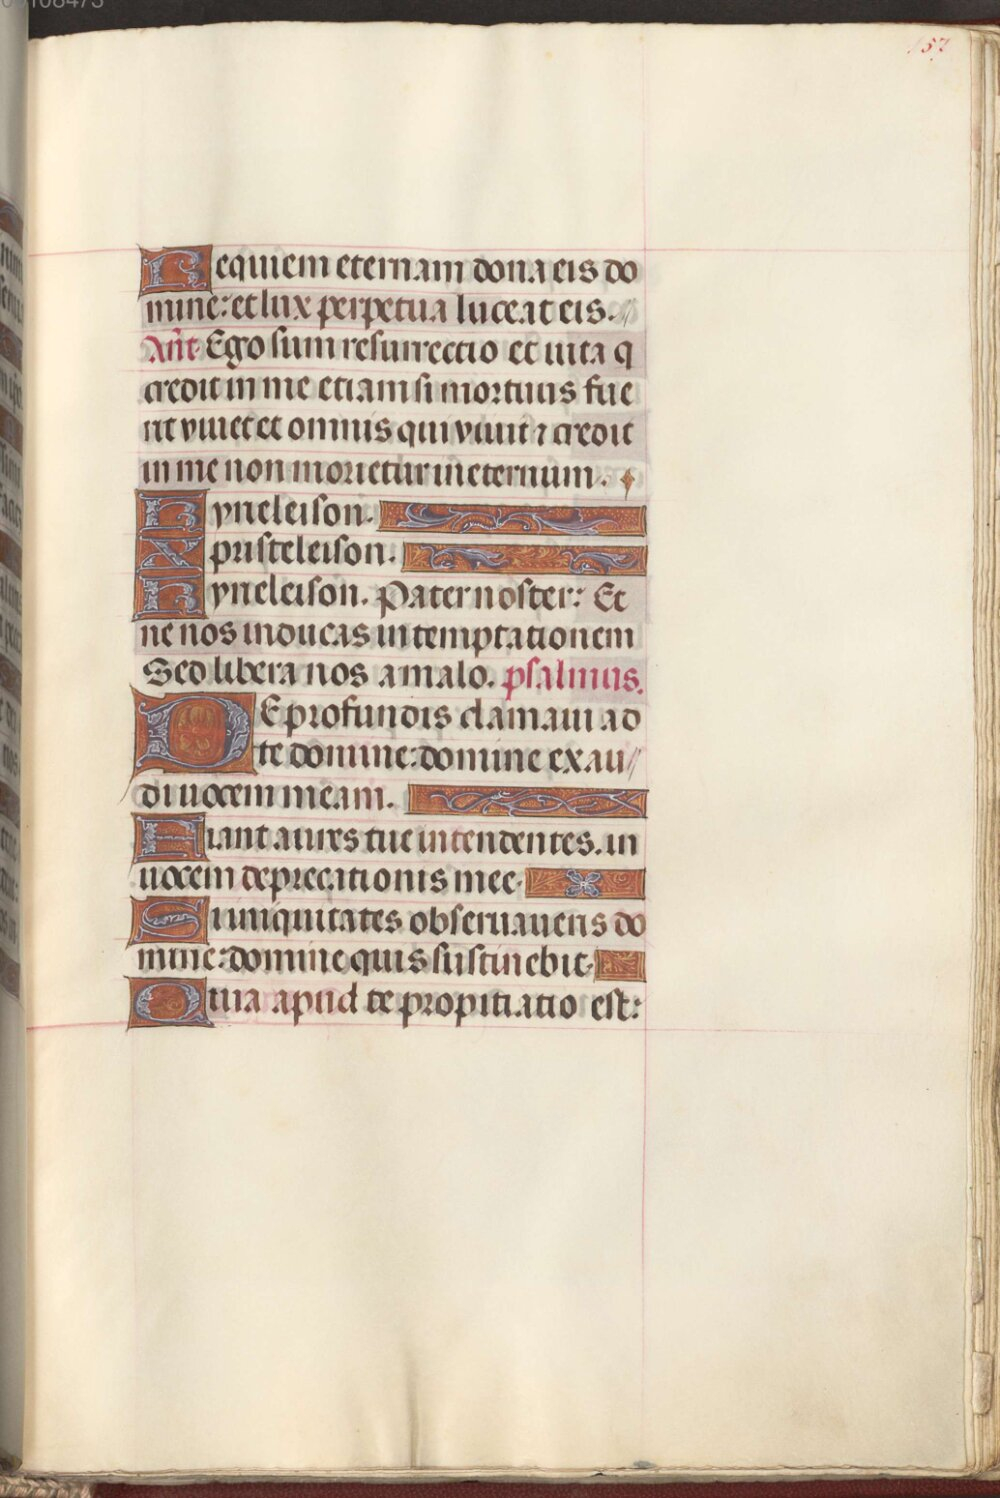 157
Requiem eternam dona eis do
mine: et lux perpetua luceat eis.
Ant. Ego sum resurrectio et uita q
credit in me etiam si mortuus fue
rit viuet et omnis qui viuit ⁊ credit
in me non morietur in eternum.
Kyrieleison.
Xpristeleison.
Kyrieleison. Pater noster: Et
ne nos inducas in temptationem
Sed libera nos a malo. psalmus.
DE profundis clamaui ad
te domine: domine exau
di uocem meam.
Fiant aures tue intendentes. in
uocem deprecationis mee.
Si iniquitates obseruaueris do
mine: domine quis sustinebit.
Quia apud te propitiatio est: